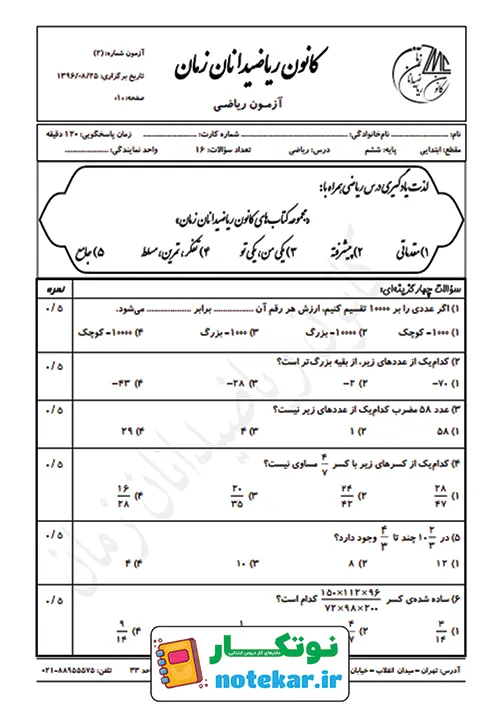 کانون ریاضیدانان زمان
آزمون ریاضی
آزمون شماره: (۲)
تاریخ برگزاری: ۱۳۹۶/۰۸/۲۵
صفحه: ۰۱
نام: ........ نام‌خانوادگی: ........ شماره کارت: ........ زمان پاسخگویی: ۱۲۰ دقیقه
مقطع: ابتدایی پایه: ششم درس: ریاضی تعداد سؤالات: ۱۶ واحد نمایندگی: ........
لذت یادگیری درس ریاضی همراه با:
«مجموعه کتاب‌های کانون ریاضیدانان زمان»
۱) مقدماتی ۲) پیشرفته ۳) یکی من، یکی تو ۴) تفکر، تمرین، مسلط ۵) جامع
سؤالات چهارگزینه‌ای: نمره
۱) اگر عددی را بر ۱۰۰۰۰ تقسیم کنیم، ارزش هر رقم آن ........ برابر ........ می‌شود. ۰/۵
۱) ۱۰۰۰- کوچک ۲) ۱۰۰۰۰- بزرگ ۳) ۱۰۰۰- بزرگ ۴) ۱۰۰۰۰- کوچک
۲) کدام‌یک از عددهای زیر، از بقیه بزرگ‌تر است؟ ۰/۵
۱) ۷۰- ۲) ۲- ۳) ۲۸- ۴) ۴۳-
۳) عدد ۵۸ مضرب کدام‌یک از عددهای زیر نیست؟ ۰/۵
۱) ۵۸ ۲) ۱ ۳) ۴ ۴) ۲۹
۴) کدام‌یک از کسرهای زیر با کسر ۴/۷ مساوی نیست؟ ۰/۵
۱) ۲۸/۴۷ ۲) ۲۴/۴۲ ۳) ۲۰/۳۵ ۴) ۱۶/۲۸
۵) در ۱۰ ۲/۳ چند تا ۴/۳ وجود دارد؟ ۰/۵
۱) ۱۲ ۲) ۸ ۳) ۱۰ ۴) ۴
۶) ساده شده‌ی کسر ۱۵۰×۱۱۲×۹۶/۷۲×۹۸×۲۰۰ کدام است؟ ۰/۵
۱) ۳/۱۴ ۲) ۴/۷ ۴) ۹/۱۴
آدرس: تهران – میدان انقلاب – خیابان
۳۳ تلفن: ۸۸۹۵۵۵۷۵-۰۲۱
نوتکــار
دفترهای کار دروس ابتدایی
notekar.ir